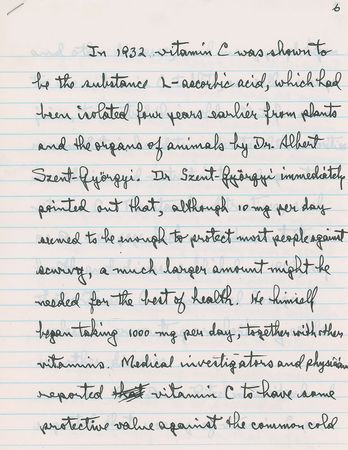 6
In 1932 vitamin C was shown to
be the substance L-ascorbic acid, which had
been isolated four years earlier from plants
and the organs of animals by Dr. Albert
Szent-Györgyi. Dr Szent-Györgyi immediately
pointed out that, although 10 mg per day
seemed to be enough to protect most people against
scurvy, a much larger amount might be
needed for the best of health. He himself
began taking 1000 mg per day, together with other
vitamins. Medical investigators and physicians
reported that vitamin C to have some
protective value against the common cold